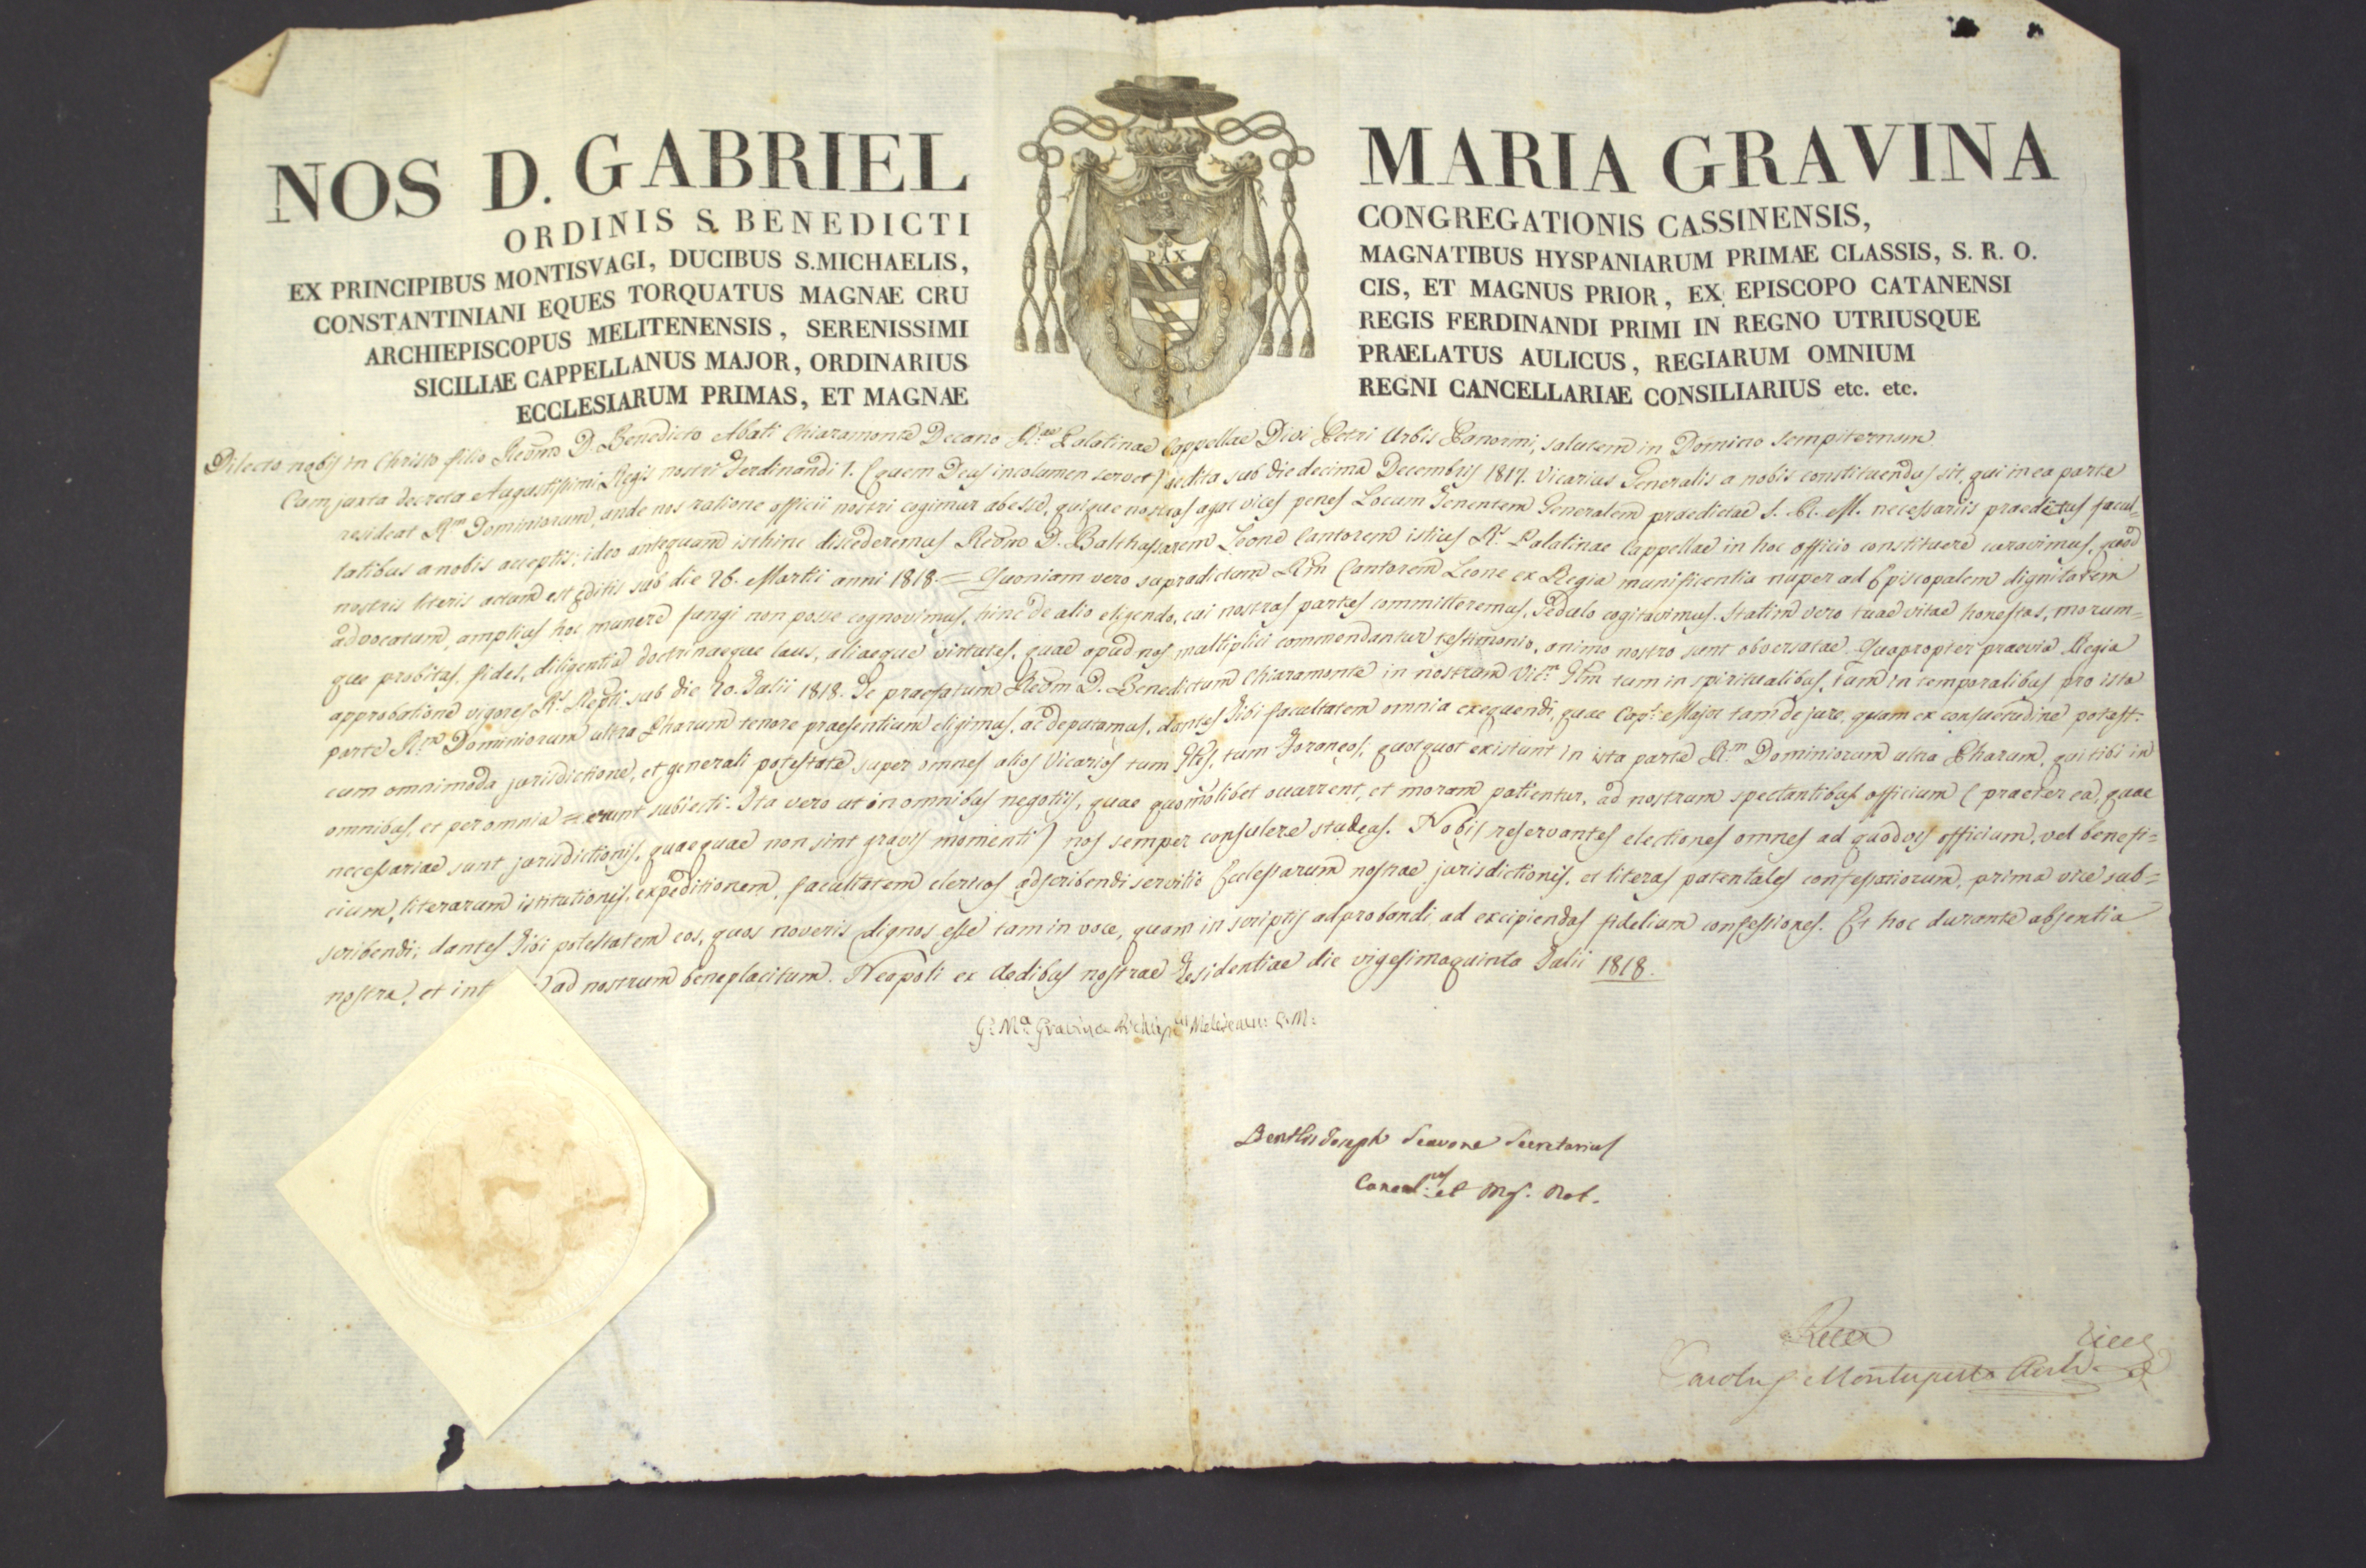 NOS D. GABRIEL MARIA GRAVINA
ORDINIS S. BENEDICTI CONGREGATIONIS CASSINENSIS,
EX PRINCIPIBUS MONTISVAGI, DUCIBUS S. MICHAELIS, MAGNATIBUS HYSPANIARUM PRIMAE CLASSIS, S. R. O.
CONSTANTINIANI EQUES TORQUATUS MAGNAE CRU CIS, ET MAGNUS PRIOR, EX EPISCOPO CATANENSI
ARCHIEPISCOPUS MELITENENSIS, SERENISSIMI REGIS FERDINANDI PRIMI IN REGNO UTRIUSQUE
SICILIAE CAPPELLANUS MAJOR, ORDINARIUS PRAELATUS AULICUS, REGIARUM OMNIUM
ECCLESIARUM PRIMAS, ET MAGNAE REGNI CANCELLARIAE CONSILIARIUS etc. etc.
PAX
Dilecto nobis in Christo filio Redmo D. Benedicto Abati Chiaramonte Decano R.ae Palatinae Cappellae Divi Petri Urbis Panormi, salutem in Domino sempiternam
Cum juxta decreta Augustissimi Regis nostri Ferdinandi I. (quem Deus incolumen servet) aedita sub die decima Decembris 1817. Vicarius Generalis a nobis constituendus sit, qui in ea parte
resideat R.m Dominiorum, unde nos ratione officii nostri cogimur abesse, quique nostras agat vices penes Locum Tenentem Generalem praedictae S. R. M. necessariis praeditus facul-
tatibus a nobis acceptis; ideo antequam isthinc discederemus Redmo D. Balthassarem Leone Cantorem istius R.s Palatinae Cappellae in hoc officio constituere curavimus, quod
nostris literis actum est editis sub die 26. Martii anni 1818. = Quoniam vero supradictum Rm Cantorem Leone ex Regia munificentia nuper ad Episcopalem dignitatem
advocatum, amplius hoc munere fungi non posse cognovimus, hinc de alio eligendo, cui nostras partes committeremus, sedulo cogitavimus. Statim vero tuae vitae honestas, morum=
que probitas, fides, diligentia doctrinaeque laus, aliaeque virtutes, quae apud nos multiplici commendantur testimonio, animo nostro sunt observatae. Quapropter praevia Regia
approbatione vigore R.s Repti sub die 20. Julii 1818. Te praefatum Redm D. Benedictum Chiaramonte in nostrum Vic.m Glm tum in spiritualibus, tum in temporalibus pro ista
parte R.m Dominiorum ultra Pharum tenore praesentium eligimus, ac deputamus, dantes Tibi facultatem omnia exequendi, quae Cap.s Major tam de jure, quam ex consuetudine potest:
cum omnimoda jurisdictione, et generali potestate super omnes alios Vicarios tum Gles, tum Foraneos, quotquot existunt in ista parte R.m Dominiorum ultra Pharum, qui tibi in
omnibus, et per omnia = erunt subiecti. Ita vero ut in omnibus negotiis, quae quomolibet ocurrent, et moram patientur, ad nostrum spectantibus officium (praeter ea, quae
necessariae sunt jurisdictionis, quaeque non sint gravis momenti) nos semper consulere studeas. Nobis reservantes electiones omnes ad quodvis officium, vel benefi=
cium, literarum istitutionis, expeditionem, facultatem clericos adscribendi servitio Ecclesiarum nostrae jurisdictionis, et literas patentales confessariorum, prima vice sub=
scribendi; dantes Tibi potestatem eos, quos noveris dignos esse tam in voce, quam in scriptis adprobandi ad excipiendas fidelium confessiones. Et hoc durante absentia
nostra, et int ad nostrum beneplacitum. Neapoli ex Aedibus nostrae Residentiae die vigesimaquinta Julii 1818.
G. M.a Gravina C. M.
Joseph Secretarius
Cancel. et Mg. Not.
Carolus